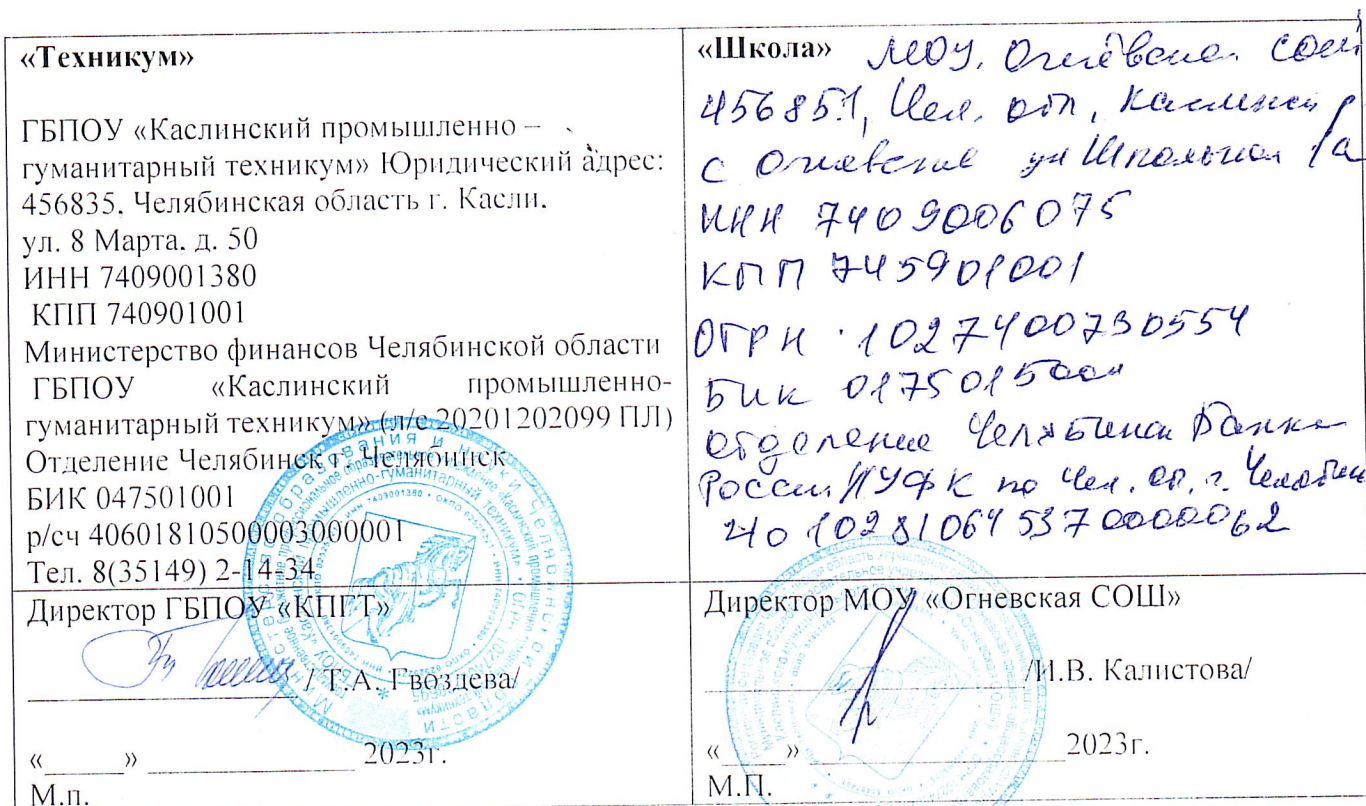 «Техникум»
ГБПОУ «Каслинский промышленно –
гуманитарный техникум» Юридический адрес:
456835, Челябинская область г. Касли,
ул. 8 Марта, д. 50
ИНН 7409001380
КПП 740901001
Министерство финансов Челябинской области
ГБПОУ «Каслинский промышленно-
гуманитарный техникум» (л/с 20201202099 ПЛ)
Отделение Челябинск г. Челябинск
БИК 047501001
р/сч 40601810500003000001
Тел. 8(35149) 2-14-34
Директор ГБПОУ «КПГТ»
/ Т.А. Гвоздева/
«_____» _____________ 2023г.
М.п.
«Школа» МОУ, Огнёвская СОШ
456851, Чел. обл, Каслинский
с Огневское ул Школьная 1а
ИНН 7409006075
КПП 745901001
ОГРН 1027400730554
БИК
отделение Челябинск Банка
России//УФК по Чел. об. г. Челябинск
40102810645370000062
Директор МОУ «Огневская СОШ»
/И.В. Калистова/
«____» _________________2023г.
М.П.